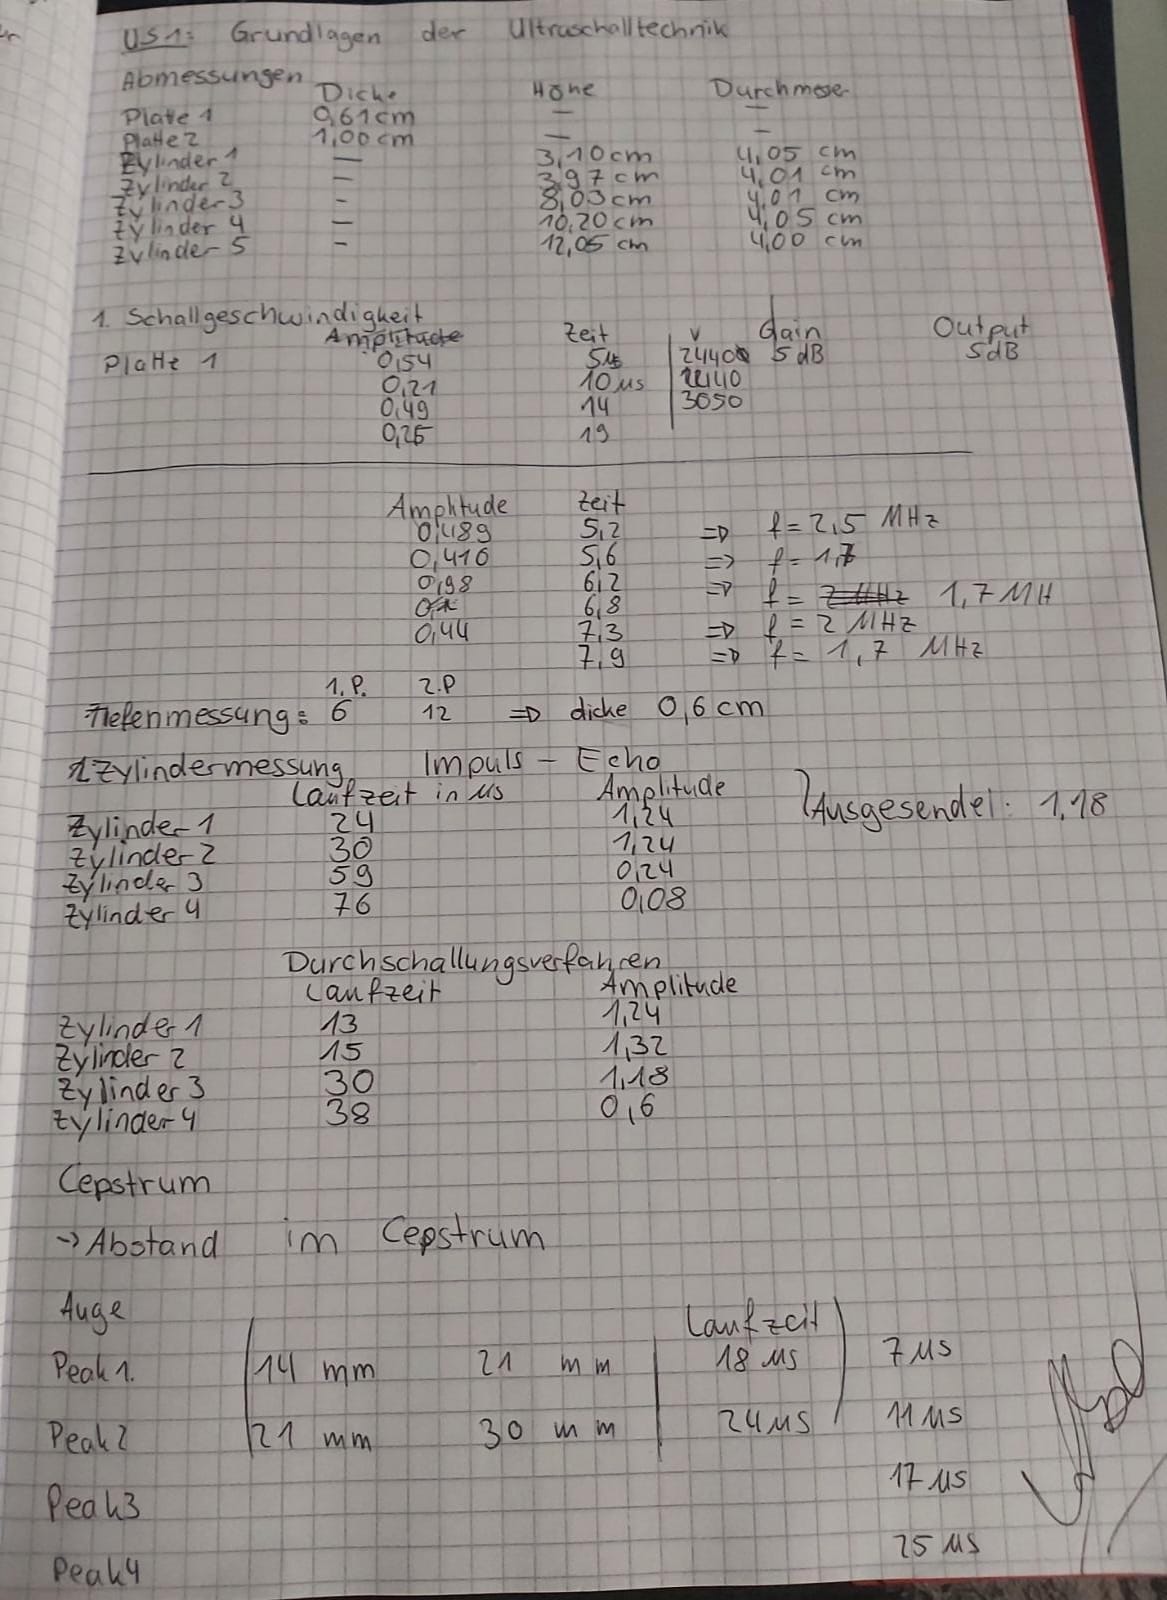 US1: Grundlagen der Ultraschalltechnik
Abmessungen Dicke Höhe Durchmesser
Platte 1 0,61cm — —
Platte 2 1,00cm — —
Zylinder 1 — 3,10cm 4,05 cm
Zylinder 2 — 3,97cm 4,01 cm
Zylinder 3 – 8,03cm 4,01 cm
Zylinder 4 – 10,20cm 4,05 cm
Zylinder 5 – 12,05 cm 4,00 cm
1. Schallgeschwindigkeit
Amplitude Zeit v Gain Output
Platte 1 0,54 5µs 2440 5 dB 5dB
0,21 10 µs 2440
0,49 14 3050
0,25 19
Amplitude Zeit
0,489 5,2 => f = 2,5 MHz
0,410 5,6 => f = 1,7
0,98 6,2 => f = 2 MHz 1,7 MH
6,8
0,44 7,3 => f = 2 MHz
7,9 => f = 1,7 MHz
1.P. 2.P
Tiefenmessung: 6 12 => dicke 0,6 cm
Zylindermessung Impuls – Echo
Laufzeit in µs Amplitude
Zylinder 1 24 1,24 Ausgesendet: 1,18
Zylinder 2 30 1,24
Zylinder 3 59 0,24
Zylinder 4 76 0,08
Durchschallungsverfahren
Laufzeit Amplitude
Zylinder 1 13 1,24
Zylinder 2 15 1,32
Zylinder 3 30 1,18
Zylinder 4 38 0,6
Cepstrum
-> Abstand im Cepstrum
Auge Laufzeit
Peak 1. 14 mm 21 mm 18 µs 7 µs
Peak 2 21 mm 30 mm 24 µs 11 µs
Peak 3 17 µs
Peak 4 25 µs